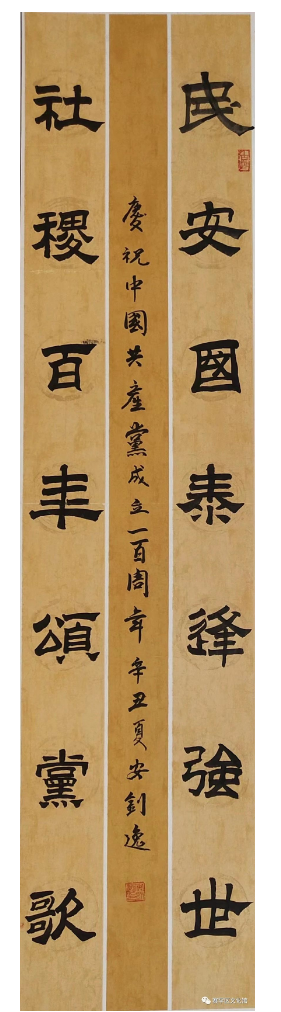 民安國泰逢強世
慶祝中國共產黨成立一百周年辛丑夏安釗逸
社稷百年頌黨歌